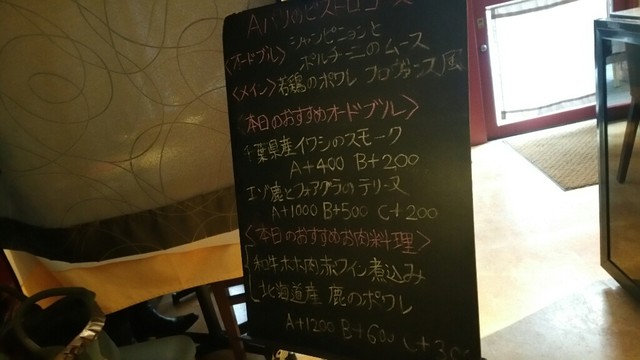 Aパリのビストロコース
<オードブル> シャンピニョンと
ポルチーニのムース
<メイン> 若鶏のポワレ プロヴァンス風
<本日のおすすめオードブル>
千葉県産イワシのスモーク
A+400 B+200
エゾ鹿とフォアグラのテリーヌ
A+1000 B+500 C+200
<本日のおすすめお肉料理>
和牛ホホ肉赤ワイン煮込み
北海道産 鹿のポワレ
A+1200 B+600 C+300